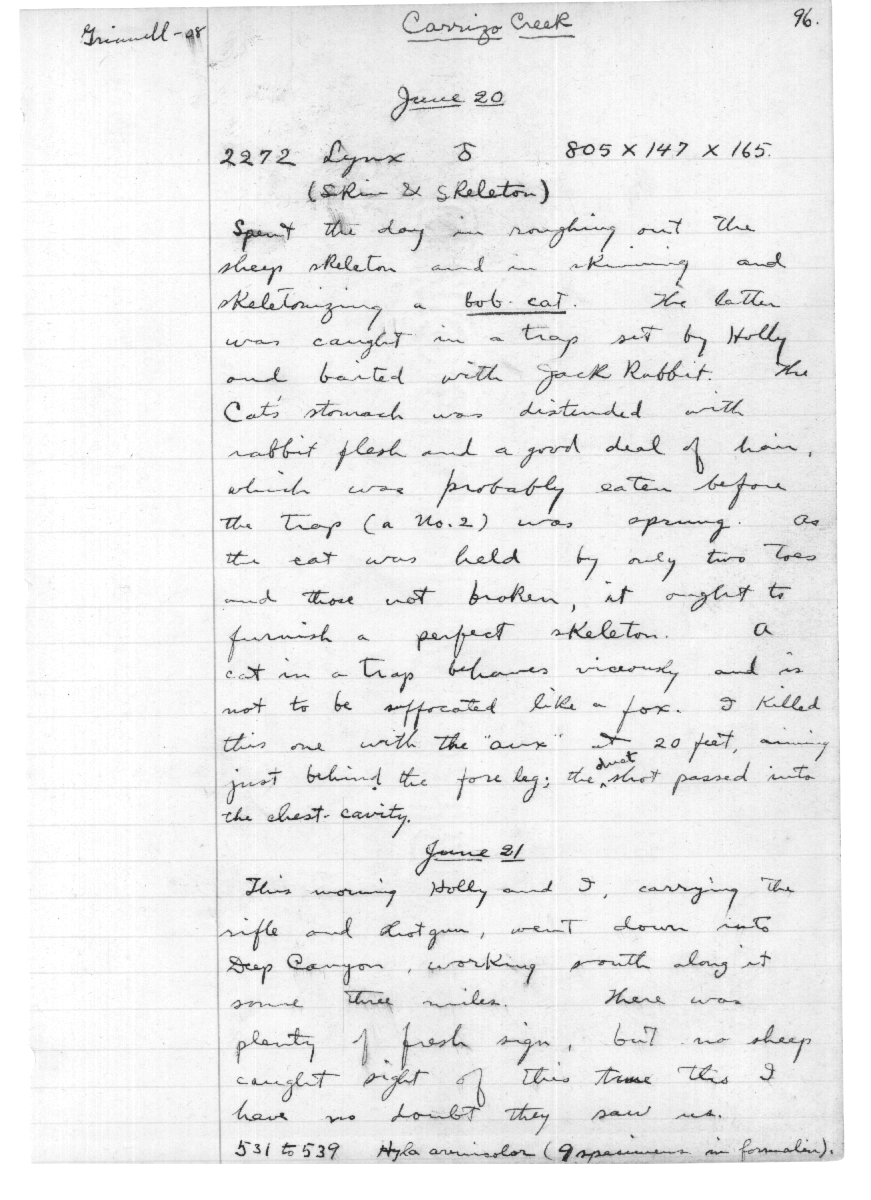 Grinnell-08
Carrizo Creek
96.
June 20
2272 Lynx ♂ 805 X 147 X 165.
(Skin & Skeleton)
Spent the day in roughing out the
sheep skeleton and in skinning and
skeletonizing a bob-cat. The latter
was caught in a trap set by Holly
and baited with Jack Rabbit. The
Cat's stomach was distended with
rabbit flesh and a good deal of hair,
which was probably eaten before
the trap (a No. 2) was sprung. As
the cat was held by only two toes
and those not broken, it ought to
furnish a perfect skeleton. A
cat in a trap behaves viceously and is
not to be suffocated like a fox. I killed
this one with the "aux" at 20 feet, aiming
just behind the fore leg; the dust shot passed into
the chest-cavity.
June 21
This morning Holly and I, carrying the
rifle and shotgun, went down into
Deep Canyon, working south along it
some three miles. There was
plenty of fresh sign, but no sheep
caught sight of this time tho I
have no doubt they saw us.
531 to 539 Hyla arenicolor (9 specimens in formalin).